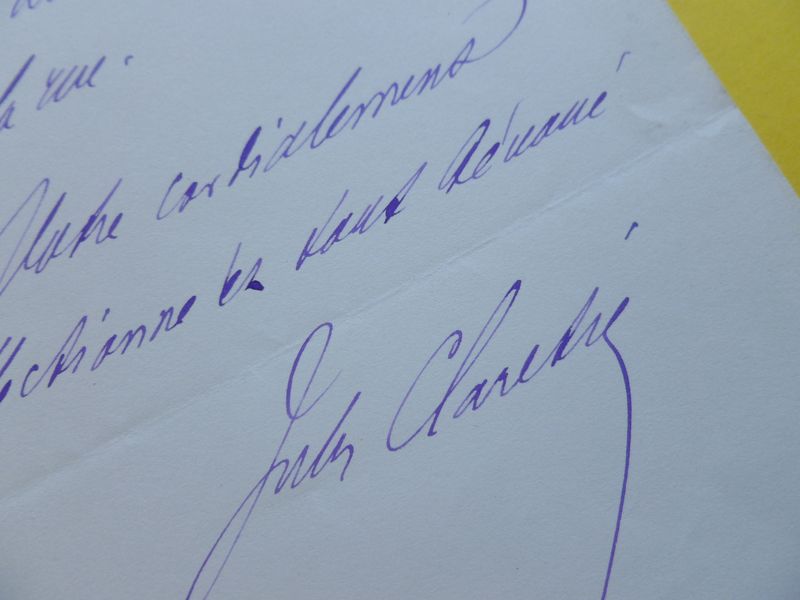 la rue.
Votre cordialement
ectionné et tout dévoué
Jules Claretie